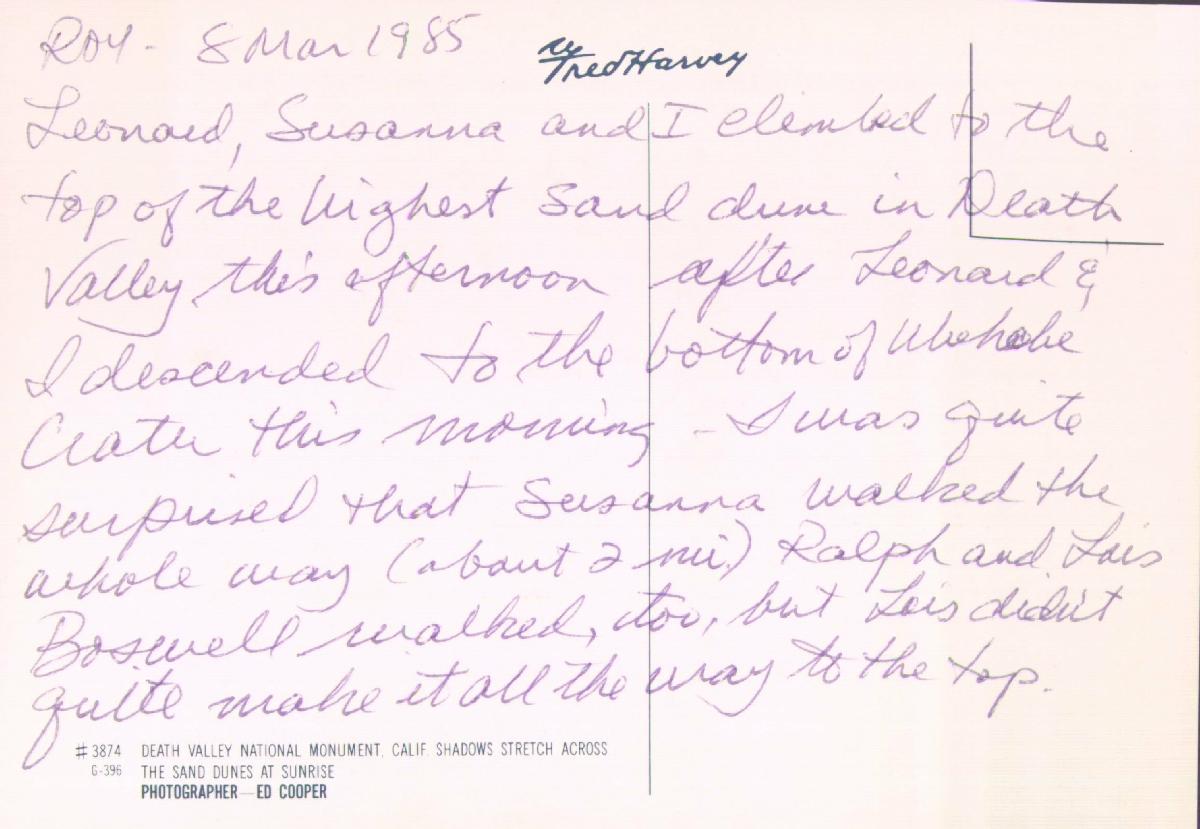 ROY - 8 Mar 1985
by Fred Harvey
Leonard, Susanna and I climbed to the
top of the highest sand dune in Death
Valley this afternoon after Leonard &
I descended to the bottom of Ubehebe
Crater this morning - I was quite
surprised that Susanna walked the
whole way (about 2 mi.) Ralph and Lois
Boswell walked, too, but Lois didn't
quite make it all the way to the top.
#3874 DEATH VALLEY NATIONAL MONUMENT, CALIF. SHADOWS STRETCH ACROSS
G-396 THE SAND DUNES AT SUNRISE
PHOTOGRAPHER—ED COOPER